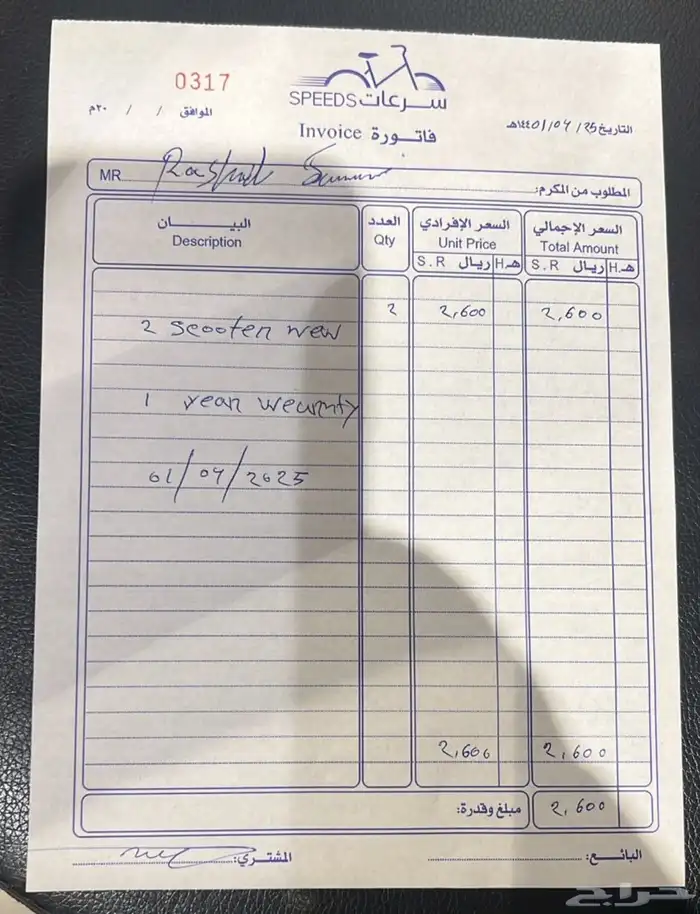 0317
SPEEDS سرعات
الموافق / / ٢٠م
Invoice فاتورة
التاريخ 01/04/25 ١٤٤هـ
MR. Rashid المطلوب من المكرم:
البيان العدد السعر الإفرادي السعر الإجمالي
Description Qty Unit Price Total Amount
S.R ريال H.هـ S.R ريال H.هـ
2 scooter new 2 2,600 2,600
1 year wearnty
01/04/2025
2,600 2,600
مبلغ وقدرة: 2,600
المشتري: البائع:
حراج